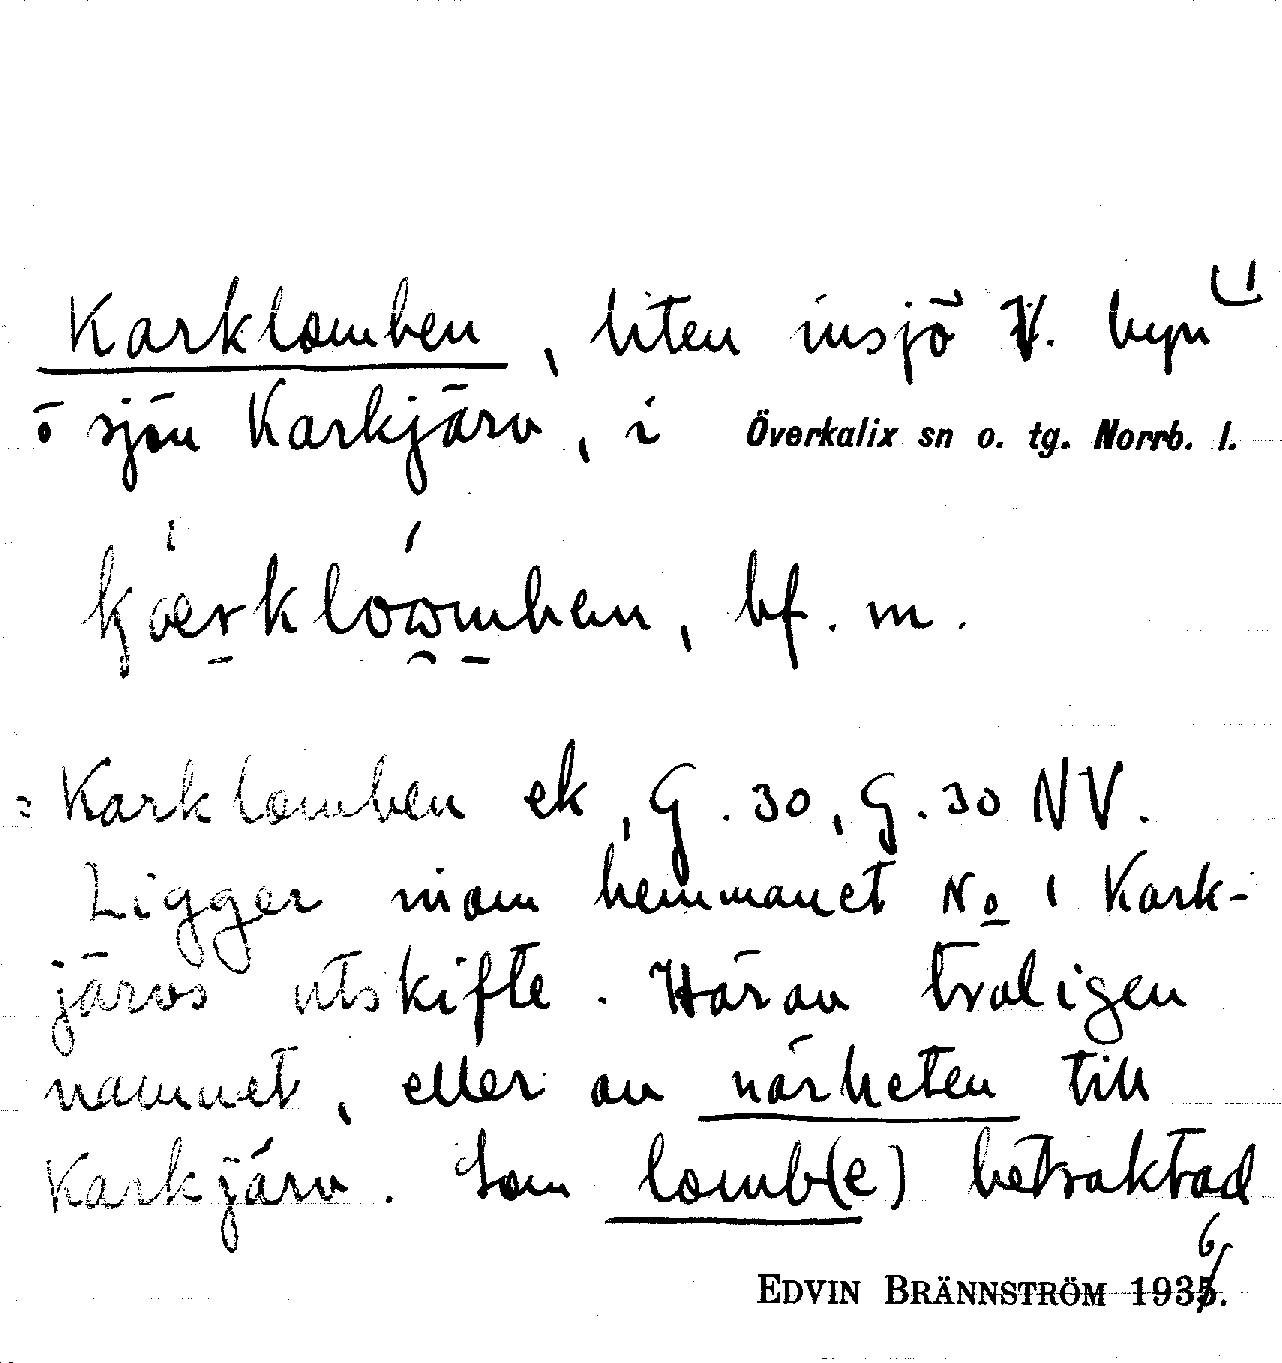 Karklomben, liten insjö V. byn
o sjön Karkjärv, i Överkalix sn o. tg. Norrb. l.
bf. m.
= Karklomben ek, G. 30, G. 30 NV.
Ligger inom hemmanet No 1 Kark-
järvs utskifte. Härav troligen
namnet, eller av närheten till
Karkjärv. Som lomb(e) betraktad
EDVIN BRÄNNSTRÖM 1936.